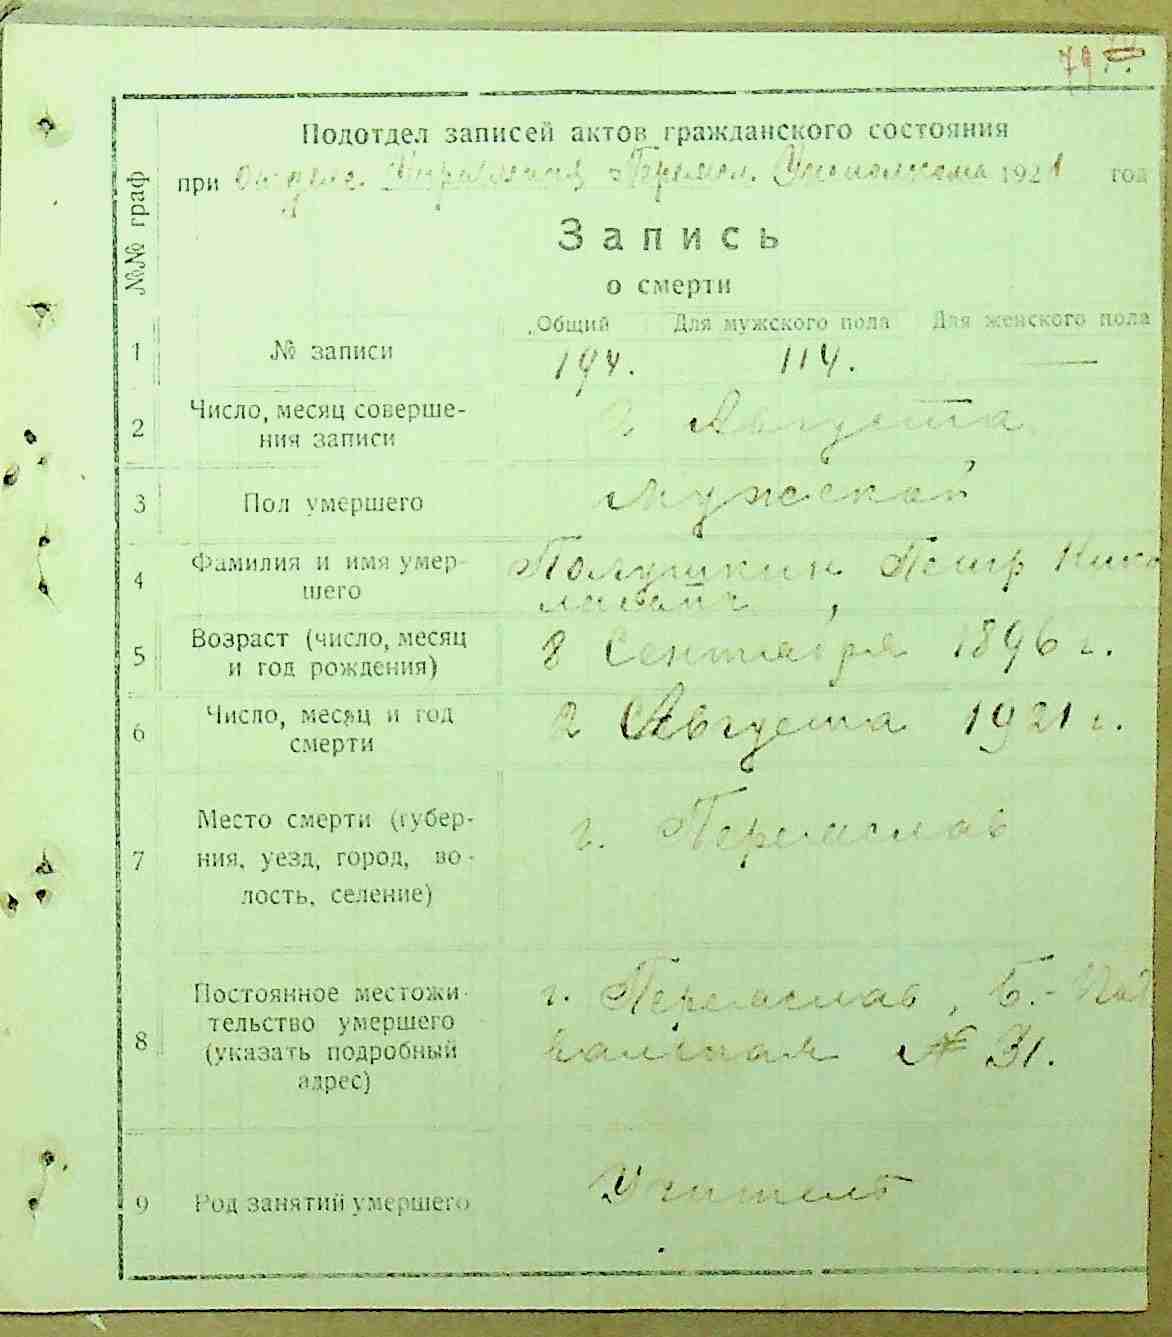 79
Подотдел записей актов гражданского состояния
при Отделе Управления Переясл. Уисполкома 1921 год
№№ граф
Запись
о смерти
Общий Для мужского пола Для женского пола
1 № записи 194. 114. —
2 Число, месяц соверше-
ния записи 2 Августа
3 Пол умершего мужской
4 Фамилия и имя умер-
шего Полушкин Петр Нико
лаевич
5 Возраст (число, месяц
и год рождения) 8 Сентября 1896 г.
6 Число, месяц и год
смерти 2 Августа 1921 г.
7 Место смерти (губер-
ния, уезд, город, во-
лость, селение) г. Переяслав
8 Постоянное местожи-
тельство умершего
(указать подробный
адрес) г. Переяслав, Б.-
№ 31.
9 Род занятий умершего Учитель